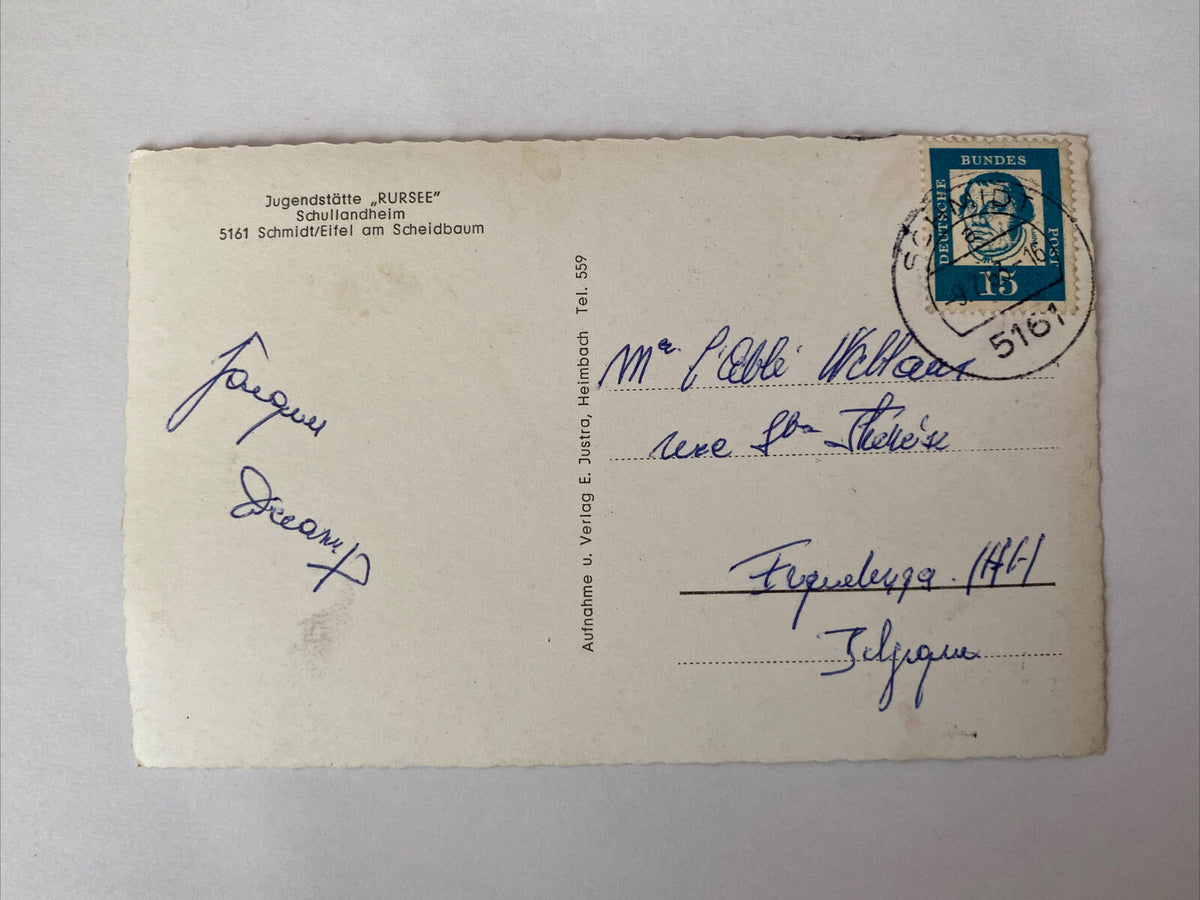 Jugendstätte „RURSEE"
Schullandheim
5161 Schmidt/Eifel am Scheidbaum
Aufnahme u. Verlag E. Justra, Heimbach Tel. 559
DEUTSCHE
BUNDES
POST
15
SCHMIDT
5161
Mr l'Abbé
rue Ste Thérèse
Belgique